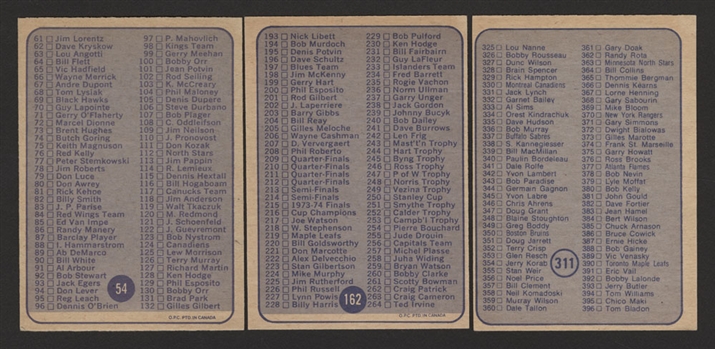 61 Jim Lorentz
62 Dave Kryskow
63 Lou Angotti
64 Bill Flett
65 Vic Hadfield
66 Wayne Merrick
67 Andre Dupont
68 Tom Lysiak
69 Black Hawks
70 Guy Lapointe
71 Gerry O'Flaherty
72 Marcel Dionne
73 Brent Hughes
74 Butch Goring
75 Keith Magnuson
76 Red Kelly
77 Pete Stemkowski
78 Jim Roberts
79 Don Luce
80 Don Awrey
81 Rick Kehoe
82 Billy Smith
83 J. P. Parise
84 Red Wings Team
85 Ed Van Impe
86 Randy Manery
87 Barclay Plager
88 I. Hammarstrom
89 Ab DeMarco
90 Bill White
91 Al Arbour
92 Bob Stewart
93 Jack Egers
94 Don Lever
95 Reg Leach
96 Dennis O'Brien
97 P. Mahovlich
98 Kings Team
99 Gerry Meehan
100 Bobby Orr
101 Jean Potvin
102 Rod Seiling
103 K. McCreary
104 Phil Maloney
105 Denis Dupere
106 Steve Durbano
107 Bob Plager
108 C. Oddleifson
109 Jim Neilson
110 J. Pronovost
111 Don Kozak
112 North Stars
113 Jim Pappin
114 R. Lemieux
115 Dennis Hextall
116 Bill Hogaboam
117 Canucks Team
118 Jim Anderson
119 Walt Tkaczuk
120 M. Redmond
121 J. Schoenfeld
122 J. Guevremont
123 Bob Nystrom
124 Canadiens
125 Lew Morrison
126 Terry Murray
127 Richard Martin
128 Ken Hodge
129 Phil Esposito
130 Bobby Orr
131 Brad Park
132 Gilles Gilbert
54
O.P.C. PTD. IN CANADA
193 Nick Libett
194 Bob Murdoch
195 Denis Potvin
196 Dave Schultz
197 Blues Team
198 Jim McKenny
199 Gerry Hart
200 Phil Esposito
201 Rod Gilbert
202 J. Laperriere
203 Barry Gibbs
204 Bill Reay
205 Gilles Meloche
206 Wayne Cashman
207 D. Ververgaert
208 Phil Roberto
209 Quarter-Finals
210 Quarter-Finals
211 Quarter-Finals
212 Quarter-Finals
213 Semi-Finals
214 Semi-Finals
215 1973-74 Finals
216 Cup Champions
217 Joe Watson
218 W. Stephenson
219 Maple Leafs
220 Bill Goldsworthy
221 Don Marcotte
222 Alex Delvecchio
223 Stan Gilbertson
224 Mike Murphy
225 Jim Rutherford
226 Phil Russell
227 Lynn Powis
228 Billy Harris
229 Bob Pulford
230 Ken Hodge
231 Bill Fairbairn
232 Guy LaFleur
233 Islanders Team
234 Fred Barrett
235 Rogie Vachon
236 Norm Ullman
237 Garry Unger
238 Jack Gordon
239 Johnny Bucyk
240 Bob Dailey
241 Dave Burrows
242 Len Frig
243 Mast'n Trophy
244 Hart Trophy
245 Byng Trophy
246 Ross Trophy
247 P of W Trophy
248 Norris Trophy
249 Vezina Trophy
250 Stanley Cup
251 Smythe Trophy
252 Calder Trophy
253 Campb'l Trophy
254 Pierre Bouchard
255 Jude Drouin
256 Capitals Team
257 Michel Plasse
258 Juha Widing
259 Bryan Watson
260 Bobby Clarke
261 Scotty Bowman
262 Craig Patrick
263 Craig Cameron
264 Ted Irvine
162
O.P.C. PTD. IN CANADA
325 Lou Nanne
326 Bobby Rousseau
327 Dunc Wilson
328 Brian Spencer
329 Rick Hampton
330 Montreal Canadiens
331 Jack Lynch
332 Garnet Bailey
333 Al Sims
334 Orest Kindrachuk
335 Dave Hudson
336 Bob Murray
337 Buffalo Sabres
338 S. Kannegiesser
339 Bill MacMillan
340 Paulin Bordeleau
341 Dale Rolfe
342 Yvon Lambert
343 Bob Paradise
344 Germain Gagnon
345 Yvon Labre
346 Chris Ahrens
347 Doug Grant
348 Blaine Stoughton
349 Greg Boddy
350 Boston Bruins
351 Doug Jarrett
352 Terry Crisp
353 Glen Resch
354 Jerry Korab
355 Stan Weir
356 Noel Price
357 Bill Clement
358 Neil Komadoski
359 Murray Wilson
360 Dale Tallon
361 Gary Doak
362 Randy Rota
363 Minnesota North Stars
364 Bill Collins
365 Thommie Bergman
366 Dennis Kearns
367 Lorne Henning
368 Gary Sabourin
369 Mike Bloom
370 New York Rangers
371 Gary Simmons
372 Dwight Bialowas
373 Gilles Marotte
374 Frank St. Marseille
375 Garry Howatt
376 Ross Brooks
377 Atlanta Flames
378 Bob Nevin
379 Lyle Moffat
380 Bob Kelly
381 John Gould
382 Dave Fortier
383 Jean Hamel
384 Bert Wilson
385 Chuck Arnason
386 Bruce Cowick
387 Ernie Hicke
388 Bob Gainey
389 Vic Venasky
390 Toronto Maple Leafs
391 Eric Vail
392 Bobby Lalonde
393 Jerry Butler
394 Tom Williams
395 Chico Maki
396 Tom Bladon
311